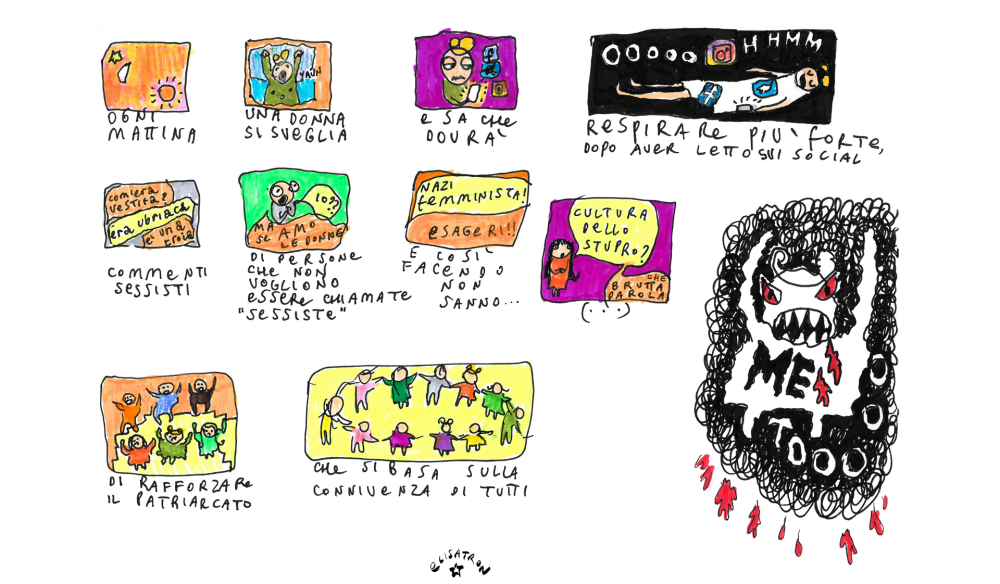 OGNI
MATTINA
YAUN
UNA DONNA
SI SVEGLIA
E SA CHE
DOVRA'
OOOOO HHMM
RESPIRARE PIU' FORTE,
DOPO AVER LETTO SUI SOCIAL
COM'ERA
VESTITA?
ERA UBRIACA
SEI UNA
TROIA
COMMENTI
SESSISTI
IO??
MA AMO
SI LE DONNE
DI PERSONE
CHE NON
VOGLIONO
ESSERE CHIAMATE
"SESSISTE"
NAZI
FEMMINISTA!
ESAGERI!!
E COSI'
FACENDO
NON
SANNO...
CULTURA
DELLO
STUPRO?
CHE
BRUTTA
PAROLA
(...)
DI RAFFORZARE
IL PATRIARCATO
CHE SI BASA SULLA
CONNIVENZA DI TUTTI
ME
TOOOO
ELISATRON